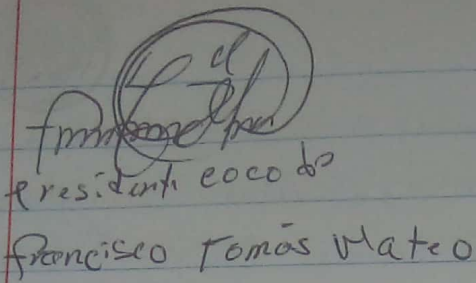 presidente cocodo
Francisco Tomás Mateo